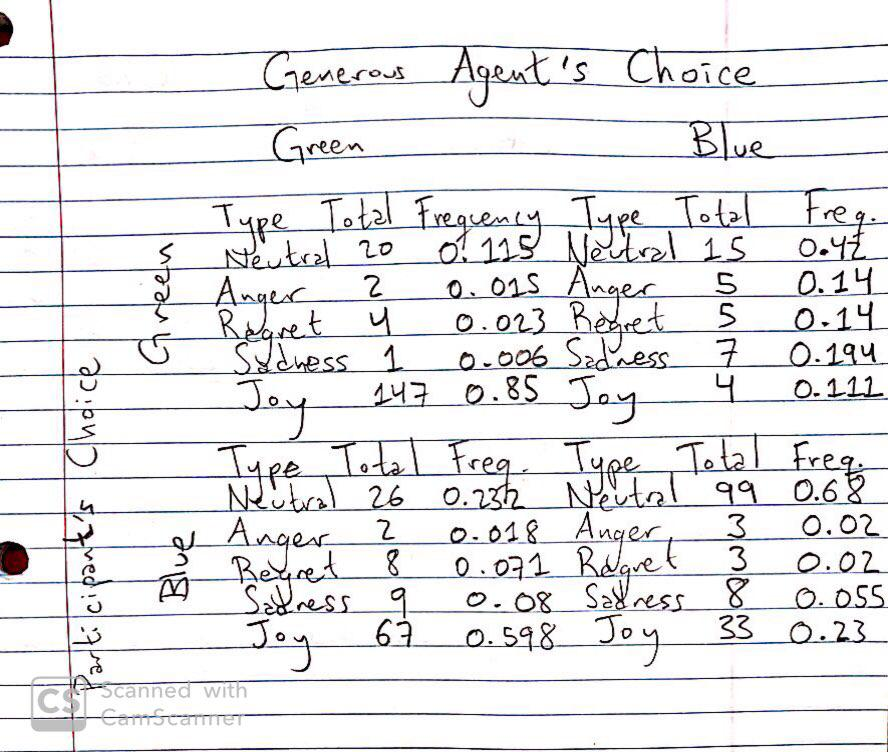 Generous Agent's Choice
Green Blue
Type Total Frequency Type Total Freq.
Neutral 20 0.115 Neutral 15 0.42
Anger 2 0.015 Anger 5 0.14
Regret 4 0.023 Regret 5 0.14
Sadness 1 0.006 Sadness 7 0.194
Joy 147 0.85 Joy 4 0.111
Green
Participant's Choice
Type Total Freq. Type Total Freq.
Neutral 26 0.232 Neutral 99 0.68
Anger 2 0.018 Anger 3 0.02
Regret 8 0.071 Regret 3 0.02
Sadness 9 0.08 Sadness 8 0.055
Joy 67 0.598 Joy 33 0.23
Blue
CS Scanned with
CamScanner